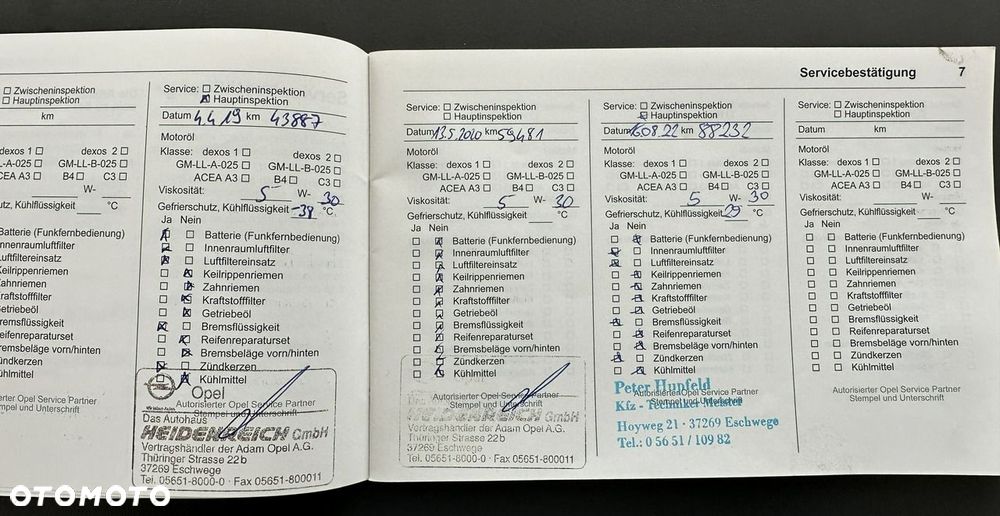 □ Zwischeninspektion
□ Hauptinspektion
km
dexos 2 □
GM-LL-B-025 □
B4 □ C3 □
W-
°C
Batterie (Funkfernbedienung)
Innenraumluftfilter
Luftfiltereinsatz
Keilrippenriemen
Zahnriemen
Kraftstofffilter
Getriebeöl
Bremsflüssigkeit
Reifenreparaturset
Bremsbeläge vorn/hinten
Zündkerzen
Kühlmittel
Service: □ Zwischeninspektion
Hauptinspektion
Datum 4.4.19 km 43887
Motoröl
Klasse: dexos 1 □ dexos 2 □
GM-LL-A-025 □ GM-LL-B-025 □
ACEA A3 □ B4 □ C3 □
Viskosität: 5 W- 30
Gefrierschutz, Kühlflüssigkeit -38 °C
Ja Nein
Batterie (Funkfernbedienung)
Innenraumluftfilter
Luftfiltereinsatz
Keilrippenriemen
Zahnriemen
Kraftstofffilter
Getriebeöl
Bremsflüssigkeit
Reifenreparaturset
Bremsbeläge vorn/hinten
Zündkerzen
Kühlmittel
Opel
Autorisierter Opel Service Partner
Stempel und Unterschrift
Das Autohaus
HEIDENREICH GmbH
Vertragshändler der Adam Opel A.G.
Thüringer Strasse 22b
37269 Eschwege
Tel. 05651-8000-0 · Fax 05651-800011
Servicebestätigung 7
Service: □ Zwischeninspektion
Hauptinspektion
Datum 13.5.2020 km 59481
Motoröl
Klasse: dexos 1 □ dexos 2 □
GM-LL-A-025 □ GM-LL-B-025 □
ACEA A3 □ B4 □ C3 □
Viskosität: 5 W- 30
Gefrierschutz, Kühlflüssigkeit °C
Ja Nein
Batterie (Funkfernbedienung)
Innenraumluftfilter
Luftfiltereinsatz
Keilrippenriemen
Zahnriemen
Kraftstofffilter
Getriebeöl
Bremsflüssigkeit
Reifenreparaturset
Bremsbeläge vorn/hinten
Zündkerzen
Kühlmittel
Autorisierter Opel Service Partner
Stempel und Unterschrift
GmbH
Vertragshändler der Adam Opel A.G.
Thüringer Strasse 22b
37269 Eschwege
Tel. 05651-8000-0 · Fax 05651-800011
Service: □ Zwischeninspektion
Hauptinspektion
Datum 16.08.22 km 88232
Motoröl
Klasse: dexos 1 □ dexos 2 □
GM-LL-A-025 □ GM-LL-B-025 □
ACEA A3 □ B4 □ C3 □
Viskosität: 5 W- 30
Gefrierschutz, Kühlflüssigkeit 29 °C
Ja Nein
Batterie (Funkfernbedienung)
Innenraumluftfilter
Luftfiltereinsatz
Keilrippenriemen
Zahnriemen
Kraftstofffilter
Getriebeöl
Bremsflüssigkeit
Reifenreparaturset
Bremsbeläge vorn/hinten
Zündkerzen
Kühlmittel
Autorisierter Opel Service Partner
Stempel und Unterschrift
Peter Hupfeld
Kfz - Techniker Meister
Hoyweg 21 · 37269 Eschwege
Tel.: 0 56 51 / 109 82
Service: □ Zwischeninspektion
□ Hauptinspektion
Datum km
Motoröl
Klasse: dexos 1 □ dexos 2 □
GM-LL-A-025 □ GM-LL-B-025 □
ACEA A3 □ B4 □ C3 □
Viskosität: W-
Gefrierschutz, Kühlflüssigkeit °C
Ja Nein
□ □ Batterie (Funkfernbedienung)
□ □ Innenraumluftfilter
□ □ Luftfiltereinsatz
□ □ Keilrippenriemen
□ □ Zahnriemen
□ □ Kraftstofffilter
□ □ Getriebeöl
□ □ Bremsflüssigkeit
□ □ Reifenreparaturset
□ □ Bremsbeläge vorn/hinten
□ □ Zündkerzen
□ □ Kühlmittel
Autorisierter Opel Service Partner
Stempel und Unterschrift
OTOMOTO